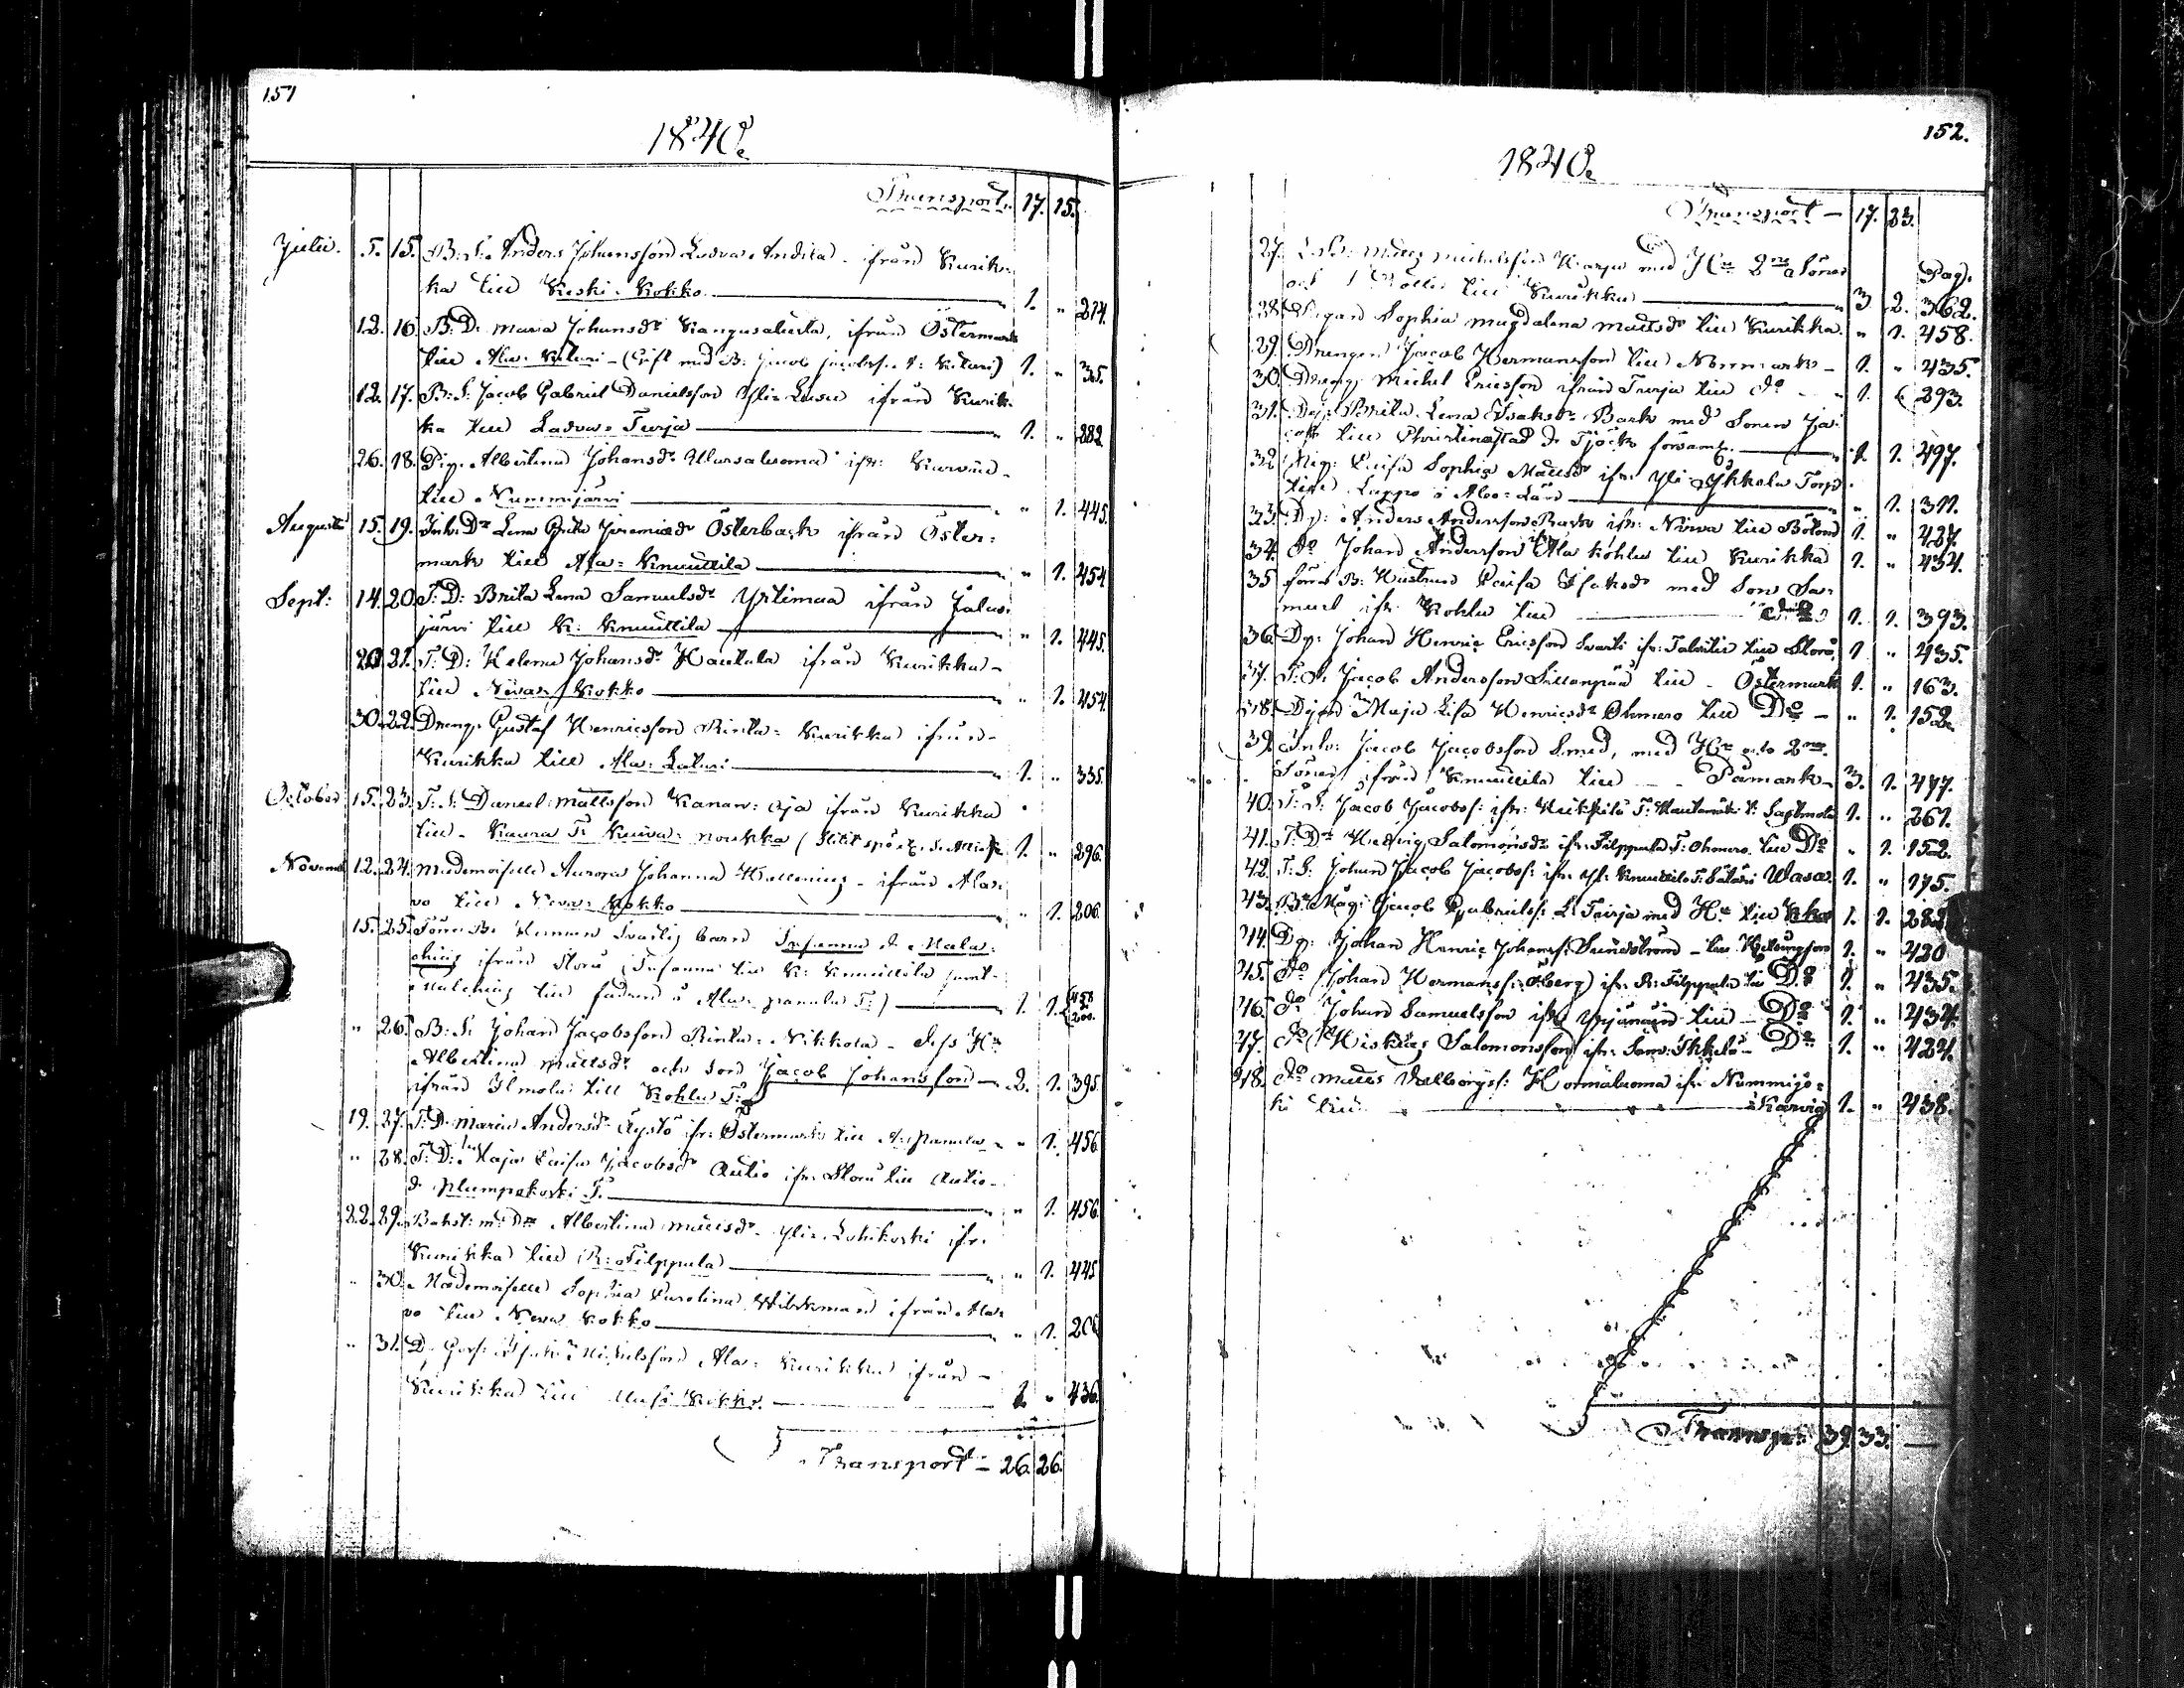 151
1840.
Transport. 17. 15.
Julii. 5. 15. B: S: Anders Johansson Ladva Andila ifrån Kurik-
ka till Keski Kokko 1. " 214.
12. 16. B: D: Maria Johansdr Kangasaluoma, ifrån Östermark
till Ala: Käturi (Gift med B: Jacob Jacobss. A: Käturi) 1. " 335.
12. 17. B: S: Jacob Gabriel Danielsson Yli: Luoma ifrån Kurik-
ka till Ladva: Turja 1. " 282.
26. 18. Pig. Albertina Johansdr ifr: Karvia
till Nummijärvi " 1. 445.
Augusti 15. 19. Inh. Dr Lena Greta Jeremiædr Österback ifrån Öster:
mark till Ala: Knuuttila " 1. 454
Sept: 14. 20. T: D: Brita Lena Samuelsdr Yrtimaa ifrån Jalas:
järvi till K: Knuuttila " 1. 445.
20. 21. T: D: Helena Johansdr Hautala ifrån Kurikka
till Neva: Kokko " 1. 454
30. 22. Dreng. Gustaf Henricsson Rinta: Kurikka ifrån
Kurikka till Ala: 1. " 335.
October 15. 23. T: S: Daniel Mattsson Kanan: oja ifrån Kurikka
till Kaura T: Kuiva: noukka 1. " 296.
Novemb 12. 24. Mademoiselle Aurora Johanna Hællenius ifrån Ala:
vo till Neva: Kokko " 1. 206.
15. 25. Svartis barn Susanna & Mala:
chias ifrån Storå Susanna till K: Knuuttila samt
Malchias till fadren å Ala: panula T:) 1. 1.
" 26. B: S: Johan Jacobsson Rinta: Nikkola dess Hu
Albertina Mattsdr och son Jacob Johansson 2. 1. 395.
ifrån Ilmola till Kohlu T:
19. 27. T: D: Maria Andersdr Äystö ifr: Östermark till A: panula " 1. 456
" 28. T: D: Maja Caisa Jacobsdr Autio ifr: Storå till Autio
& Plumpakoski T. " 1. 456.
22. 29. Albertina Mattsdr Yli: Lohikoski ifr:
Kurikka till R: Filppula " 1. 445
" 30. Mademoiselle Sophia Carolina ifrån Ala:
vo till Neva Kokko " 1. 206
" 31. Michelsson Ala: Kurikka ifrån
Kurikka till Uusi Kokko. 1. " 436.
Transport 26. 26.
152.
1840.
Transport 17. 23.
27. Matts Michelsson Harju med Hu 2ne Söner Pag.
och 1 dotter till Kurikka 3 2. 362.
28. Pigan Sophia Magdalena Mattsdr till Kurikka. " 1. 458.
29. Drengen Jacob Hermansson till Norrmark 1. " 435.
30. Dreng. Michel Ericsson ifrån Turja till do 1. 293.
31. Brita Lena Isaksdr Bark med Sonen Ja:
cob till Christinæstad & Tjöck församl. 1. 1. 497.
32. Pig: Caisa Sophia Mattsdr ifr: Yli Ykkola Torp
till Luppo i Åbo: Län " 1. 311.
33. Dg: Anders Andersson Back ifr: Neva till Bötom 1. " 427.
34. do Johan Andersson Ala Kohlu till Kurikka 1. " 434.
35. förra B: Hustrun Caisa Isaksdr med Son Sa:
muel ifr. Kohlu till 1. 1. 393.
36. Dg: Johan Henric Ericsson Svarti ifr: Talvitie till Storå 1 " 435.
37. T: S: Jacob Andersson Sillanpää till Östermark 1. " 163.
38. Maja Lisa Henricsdr Ohmero till Do " 1. 152.
39. Inh: Jacob Jacobsson Smed, med Hu och 2ne
Söner ifrån Knuuttila till Påmark 3. 1. 477.
40. T: S: Jacob Jacobss: ifr: Heikkilä T: Hautamäki t: Sastmola 1. " 261.
41. T: Dr Hedvig Salomonsdr ifr: Filppula T: Ohmero till Do " 1. 152.
42. T: S: Johan Jacob Jacobss: ifr: Yl: Knuuttila T: Wasa. 1. " 175.
43. B: Måg: Jacob Gabrielss: L: Turja med Hu till Kka 1. 1. 282
44. Dg: Johan Henric Johanss: Sundström till Helsingfors 1. " 420
45. do Johan Hermanss: Öberg) ifr: R: Filppula till Do 1. " 435.
46. do Johan Samuelsson ifr: till Do 1. " 434.
47. do Hiskias Salomonsson ifr: Ikkelä Do 1. " 424.
48. do Matts Walborgss: Homaluoma ifr Nummijo:
ki till Karvia 1. " 438.
Transp: 39. 33.